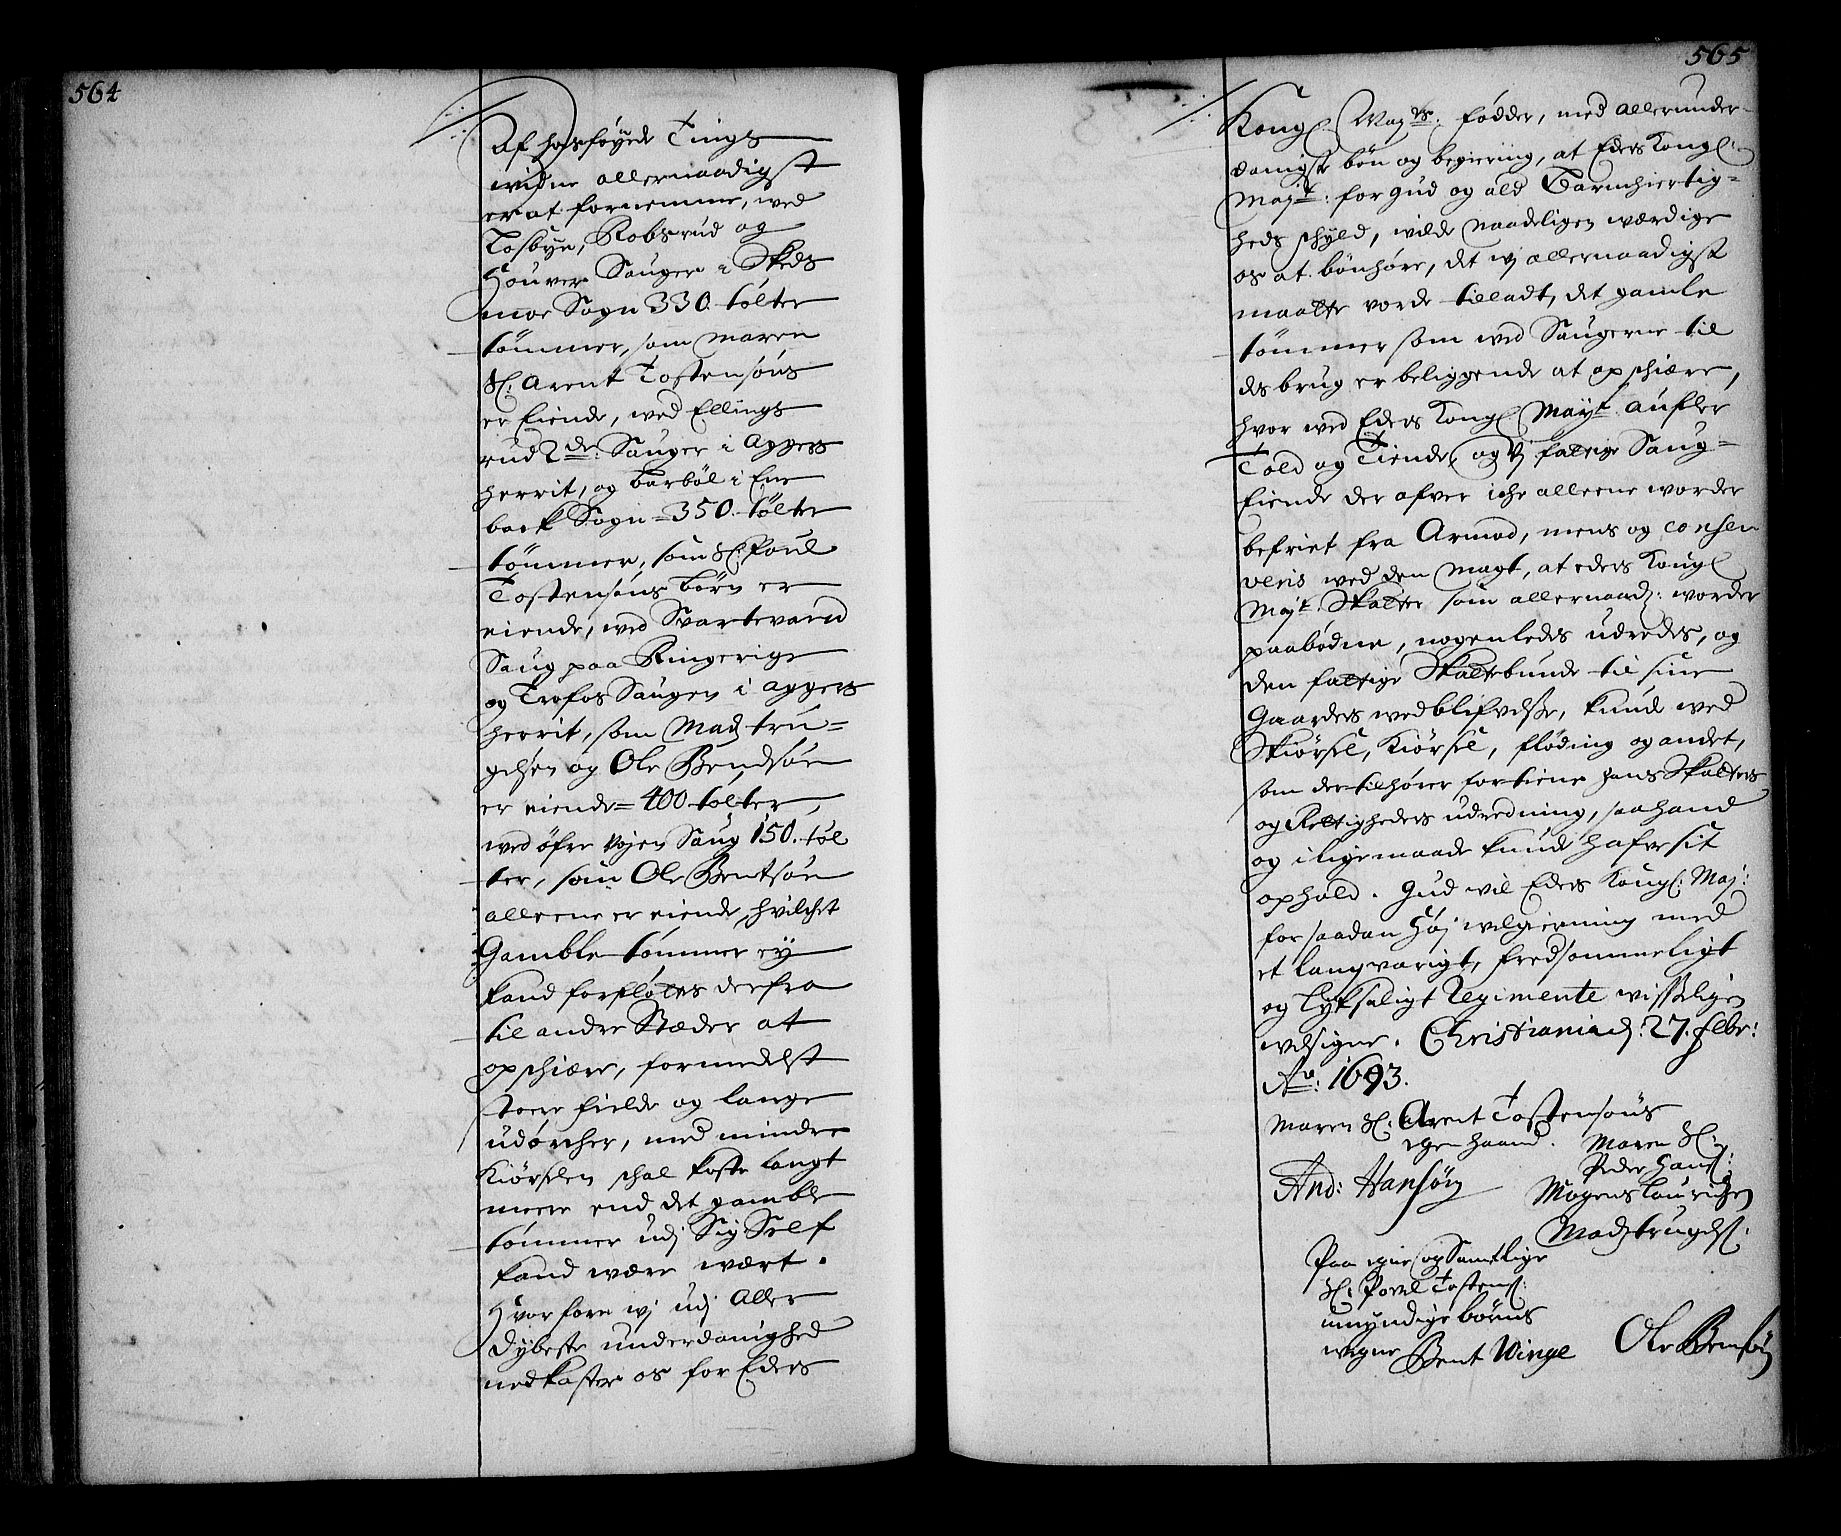 564
Af hosføyede Tings
widne allernaadigst
er at fornemme, wed
Tosbye, Robsrud og
Houver Sauger i Skeds
moe Sogn 330 tølter
tømmer, som Maren
Sl: Arent Tostensøns
er Eiende, wed Ellings
rud 2de: Sauger i Aggers
herrit, og Barbøl i Ene
back Sogn = 350 tølter
tømmer, som Sl: Poul
Tostensøns børn er
eiende, wed Svartevand
Saug paa Ringerige
og Trofos Saugen i Aggers
herrit, som Madz tru=
gelsen og Ole Bendsøn
er eiende = 400 tolter,
wed øfre Vojen Saug 150. tøl
ter, som Ole Bentsøn
alleene er eiende, hvilchet
Gamble tømmer ey
kand forfløttes derfra
til andre Stæder at
opschiære, formedelst
stoere fielde og lange
udørcher, med mindre
Kiørselen schal koste langt
meere end det gamble
tømmer udj Sig Self
kand være wært.
Hvorfore wj udj Aller
dybeste underdanighed
nedkaster os for Eders
565
Kongl Majts: fødder, med allerunder-
danigste bøn og begiering, at Eders Kongl:
Majt: for gud og ald Barmhiertig=
heds schyld, wilde naadeligen wærdige
os at bønhøre, det wj allernaadigst
maatte vorde tilladt, det gamle
tømmer som wed Saugerne til
des brug er beliggende at opschiære,
hvor wed Eders Kongl Mayt
Told og Tiende, og Vj fattige Saug=
Eiende der ofver iche alleene worder
befriet fra Armod, mens og conser
veris wed den Magt, at eders Kongl
Majt: Skatter som allernaad: worder
paabødne, nogenledes udredes, og
den fattige Skattebunde til sine
Gaarders wedblifvelse, kunde wed
Skiørsel, Kiørsel, fløding og andet,
som der tilhører fortiene hans Skatters
og Rettigheders udredning, saa hand
og i ligemaade kunde hafve sit
ophold. Gud wil Eders Kongl: Maj:
for saadan Høj welgierning med
et langvarigt, fredsommeligt
og lyksaligt Regimente wisseligen
welsigne. Christiania d: 27. febr:
Ao: 1693.
Maren Sl: Arent Tostensøns
egen haand. Maren Sl:
Peder Hans:
And: Hansøn Mogens Lauridsen
Madz trugels:
Paa egne og Samtlige
Sl: Povel Tostens:
umyndige børns
wegne Bent Winge Ole Bensøn